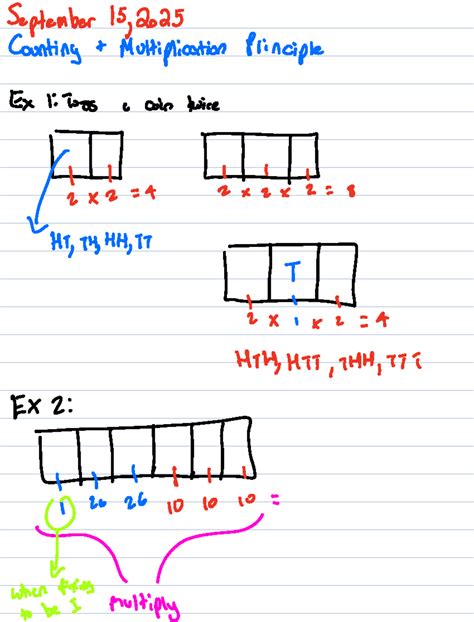 September 15, 2025
Counting + Multiplication Principle
Ex 1: Toss a coin twice
2 x 2 = 4
2 x 2 x 2 = 8
HT, TH, HH, TT
T
2 x 1 x 2 = 4
HTH, HTT, THH, TTT
Ex 2:
1 26 26 10 10 10 =
when fixing
to be I
multiply